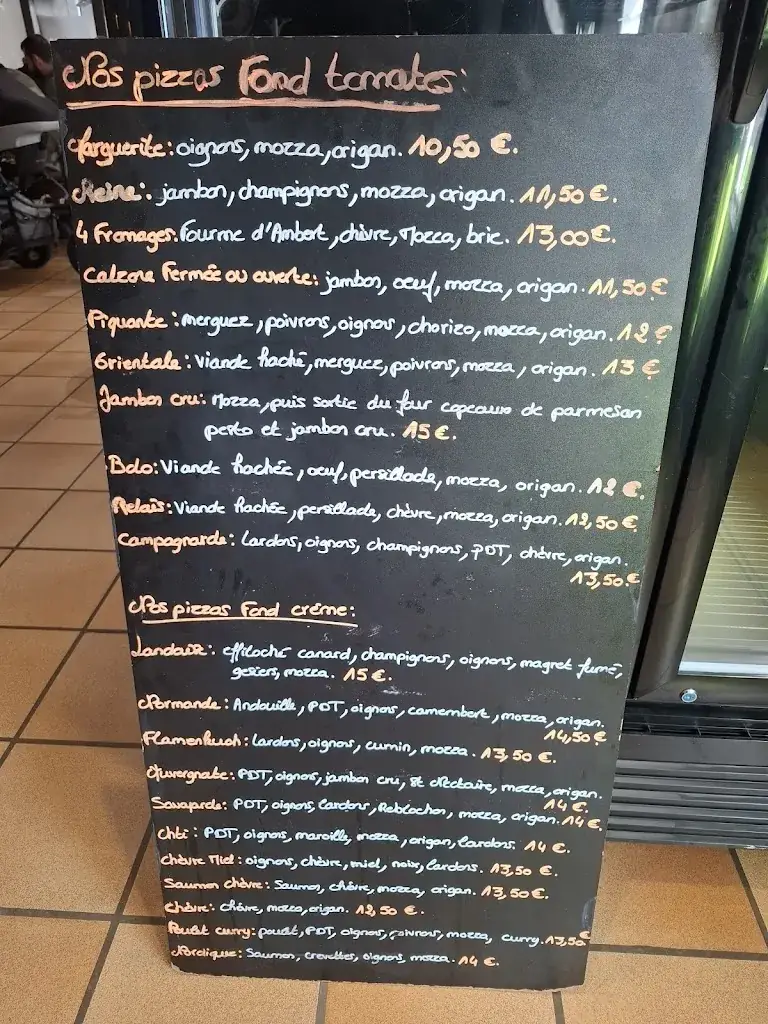 Nos pizzas Fond tomates:
Marguerite: oignons, mozza, origan. 10,50 €.
Reine: jambon, champignons, mozza, origan. 11,50 €.
4 Fromages. Fourme d'Ambert, chèvre, Mozza, brie. 13,00 €.
Calzone Fermée ou ouverte: jambon, oeuf, mozza, origan. 11,50 €
Piquante: merguez, poivrons, oignons, chorizo, mozza, origan. 12 €
Orientale: Viande haché, merguez, poivrons, mozza, origan. 13 €
Jambon cru: Mozza, puis sortie du four copeaux de parmesan
pesto et jambon cru. 15 €.
Bolo: Viande hachée, oeuf, persillade, mozza, origan. 12 €.
Relais: Viande hachée, persillade, chèvre, mozza, origan. 12,50 €
Campagnarde: Lardons, oignons, champignons, PDT, chèvre, origan.
13,50 €
Nos pizzas Fond crème:
Landaise: effiloché canard, champignons, oignons, magret fumé,
gesiers, mozza. 15 €.
Normande: Andouille, PDT, oignons, camembert, mozza, origan.
14,50 €
Flamenkuch: Lardons, oignons, cumin, mozza. 13,50 €.
Auvergnate: PDT, oignons, jambon cru, St Nectaire, mozza, origan.
14 €.
Savoyarde: PDT, oignons, lardons, Reblochon, mozza, origan. 14 €.
Chti: PDT, oignons, maroille, mozza, origan, lardons. 14 €.
Chèvre Miel: oignons, chèvre, miel, noix, lardons. 13,50 €.
Saumon chèvre: Saumon, chèvre, mozza, origan. 13,50 €.
Chèvre: Chèvre, mozza, origan. 12,50 €.
Poulet curry: poulet, PDT, oignons, poivrons, mozza, curry. 13,50 €
Nordique: Saumon, crevettes, oignons, mozza. 14 €.